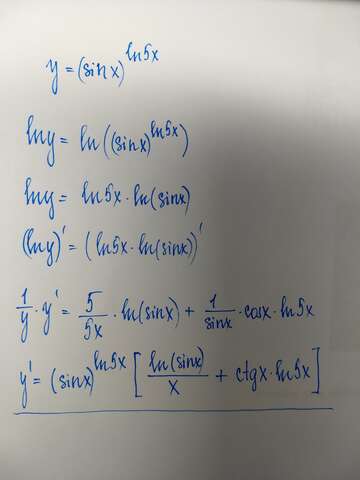 y = (sin x)^{ln5x}
lny = ln((sinx)^{ln5x})
lny = ln5x · ln(sinx)
(lny)' = (ln5x · ln(sinx))'
\frac{1}{y} · y' = \frac{5}{5x} · ln(sinx) + \frac{1}{sinx} · cosx · ln5x
y' = (sinx)^{ln5x} [\frac{ln(sinx)}{x} + ctgx · ln5x]